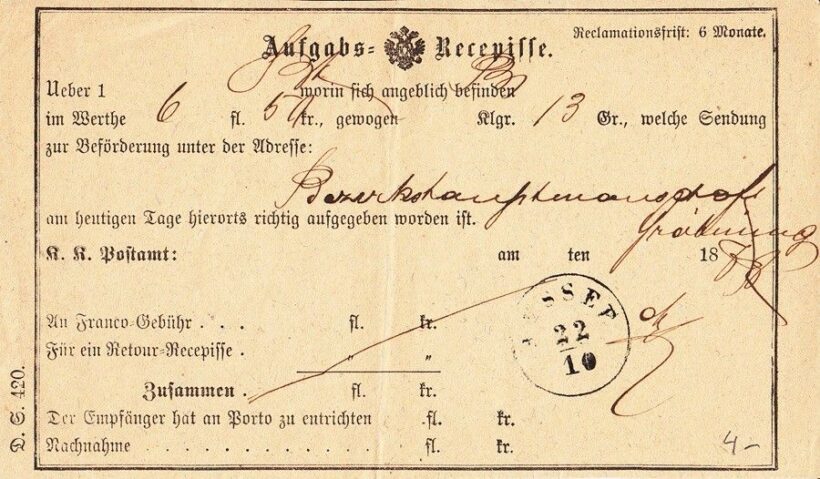 Reclamationsfrist: 6 Monate.
Aufgabs- Recepisse.
Ueber 1 worin sich angeblich befinden
im Werthe 6 fl. 50 kr., gewogen Klgr. 13 Gr., welche Sendung
zur Beförderung unter der Adresse:
Bezirkshauptmannschaft
am heutigen Tage hierorts richtig aufgegeben worden ist.
Gröbming
K. K. Postamt: am ten 18
An Franco-Gebühr . . . fl. kr.
Für ein Retour-Recepisse . " "
Zusammen . fl. kr.
Der Empfänger hat an Porto zu entrichten fl. kr.
Nachnahme . . . . . . . . . . . fl. kr.
AUSSEE
22
10
D. S. 420.
4-